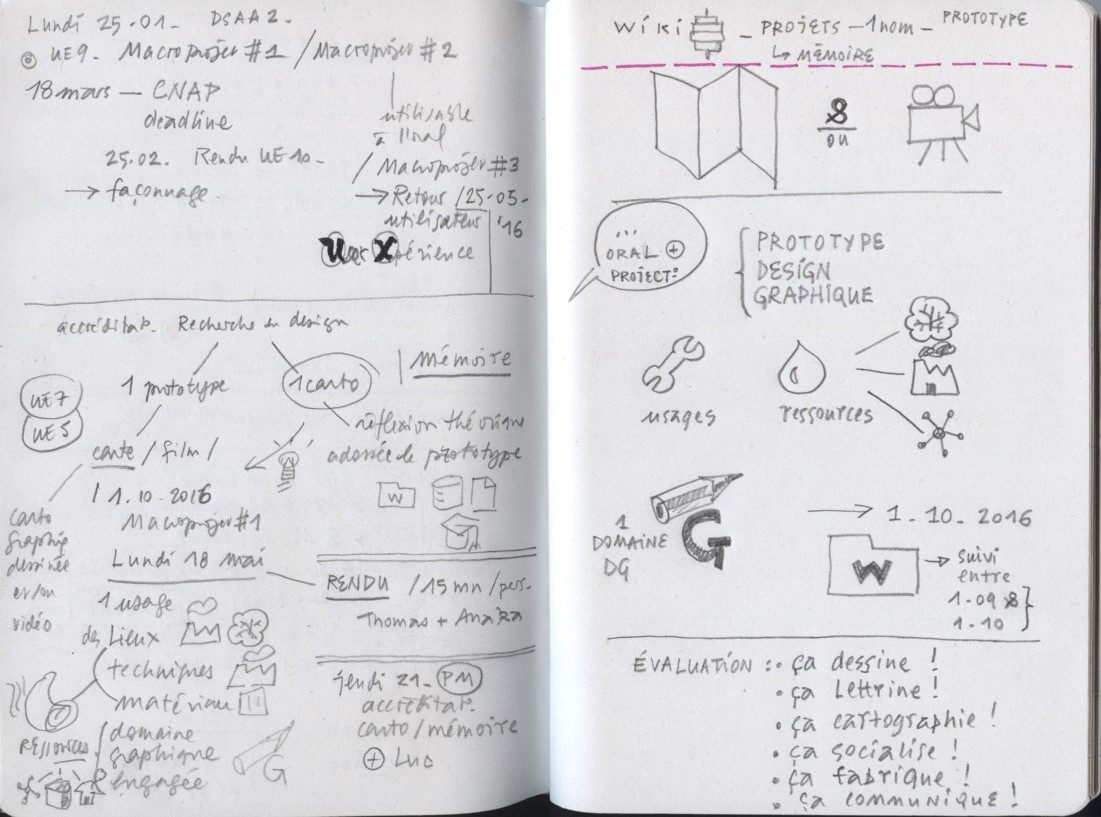 Lundi 25.01. DSAA2.
UE9. Macroprojet #1 / Macroprojet #2
18 mars — CNAP
deadline
utilisable
à l'oral
25.02. Rendu UE10-
/ Macroprojet #3
→ façonnage
→ Retour / 25.05.
utilisateurs '16
User Xpérience
accréditat. Recherche en design
1 prototype
1 carto
Mémoire
UE7
UE5
carte / film /
réflexion théorique
adossée le prototype
W
/ 1.10.2016
Macroprojet #1
Carto
graphie
dessinée
et/ou
vidéo
Lundi 18 mai
RENDU / 15 mn / pers.
Thomas +
1 usage
des Lieux
techniques
matériau
Jeudi 21- PM
accréditat.
carto / mémoire
+ Luc
RESSOURCES
domaine
graphique
engagée
G
wiki - PROJETS - 1 nom - PROTOTYPE
↳ MÉMOIRE
&
ou
...
ORAL +
PROJECT:
PROTOTYPE
DESIGN
GRAPHIQUE
usages
ressources
1
DOMAINE
DG
G
→ 1.10.2016
W
→ suivi
entre
1.09 &
1.10
ÉVALUATION : • ça dessine !
• ça Lettrine !
• ça cartographie !
• ça socialise !
• ça fabrique !
• ça communique !